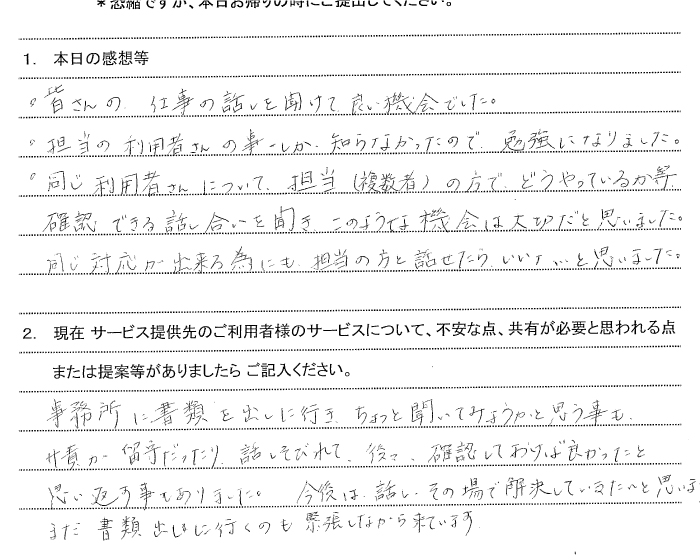 ＊恐縮ですが、本日お帰りの時にご提出してください。
1. 本日の感想等
。皆さんの 仕事の話しを聞けて 良い機会でした。
。担当の利用者さんの事しか 知らなかったので 勉強になりました。
。同じ利用者さんについて、担当（複数者）の方で どうやっているか等
確認できる話し合いを聞き このような機会は大切だと思いました。
同じ対応が出来る為にも 担当の方と話せたら いいな…と思いました。
2. 現在 サービス提供先のご利用者様のサービスについて、不安な点、共有が必要と思われる点
または提案等がありましたら ご記入ください。
事務所に書類を出しに行き ちょっと聞いてみようかと思う事も
サ責が 留守だったり 話しそびれて、後々、確認しておけば良かったと
思い返す事もありました。 今後は、話し その場で解決していきたいと思いま
まだ 書類出しに行くのも 緊張しながら来ています